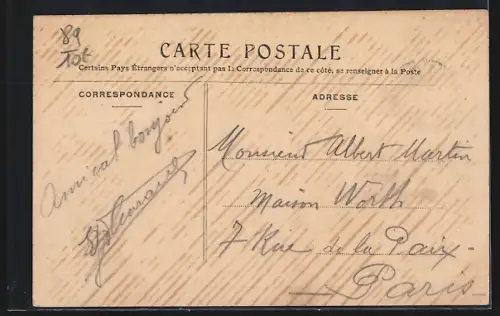 89
10t
CARTE POSTALE
Certains Pays Étrangers n'acceptant pas la Correspondance de ce côté, se renseigner à la Poste
CORRESPONDANCE
ADRESSE
Amical bonjour
Monsieur Albert Martin
Maison Worth
7 Rue de la Paix-
— Paris —